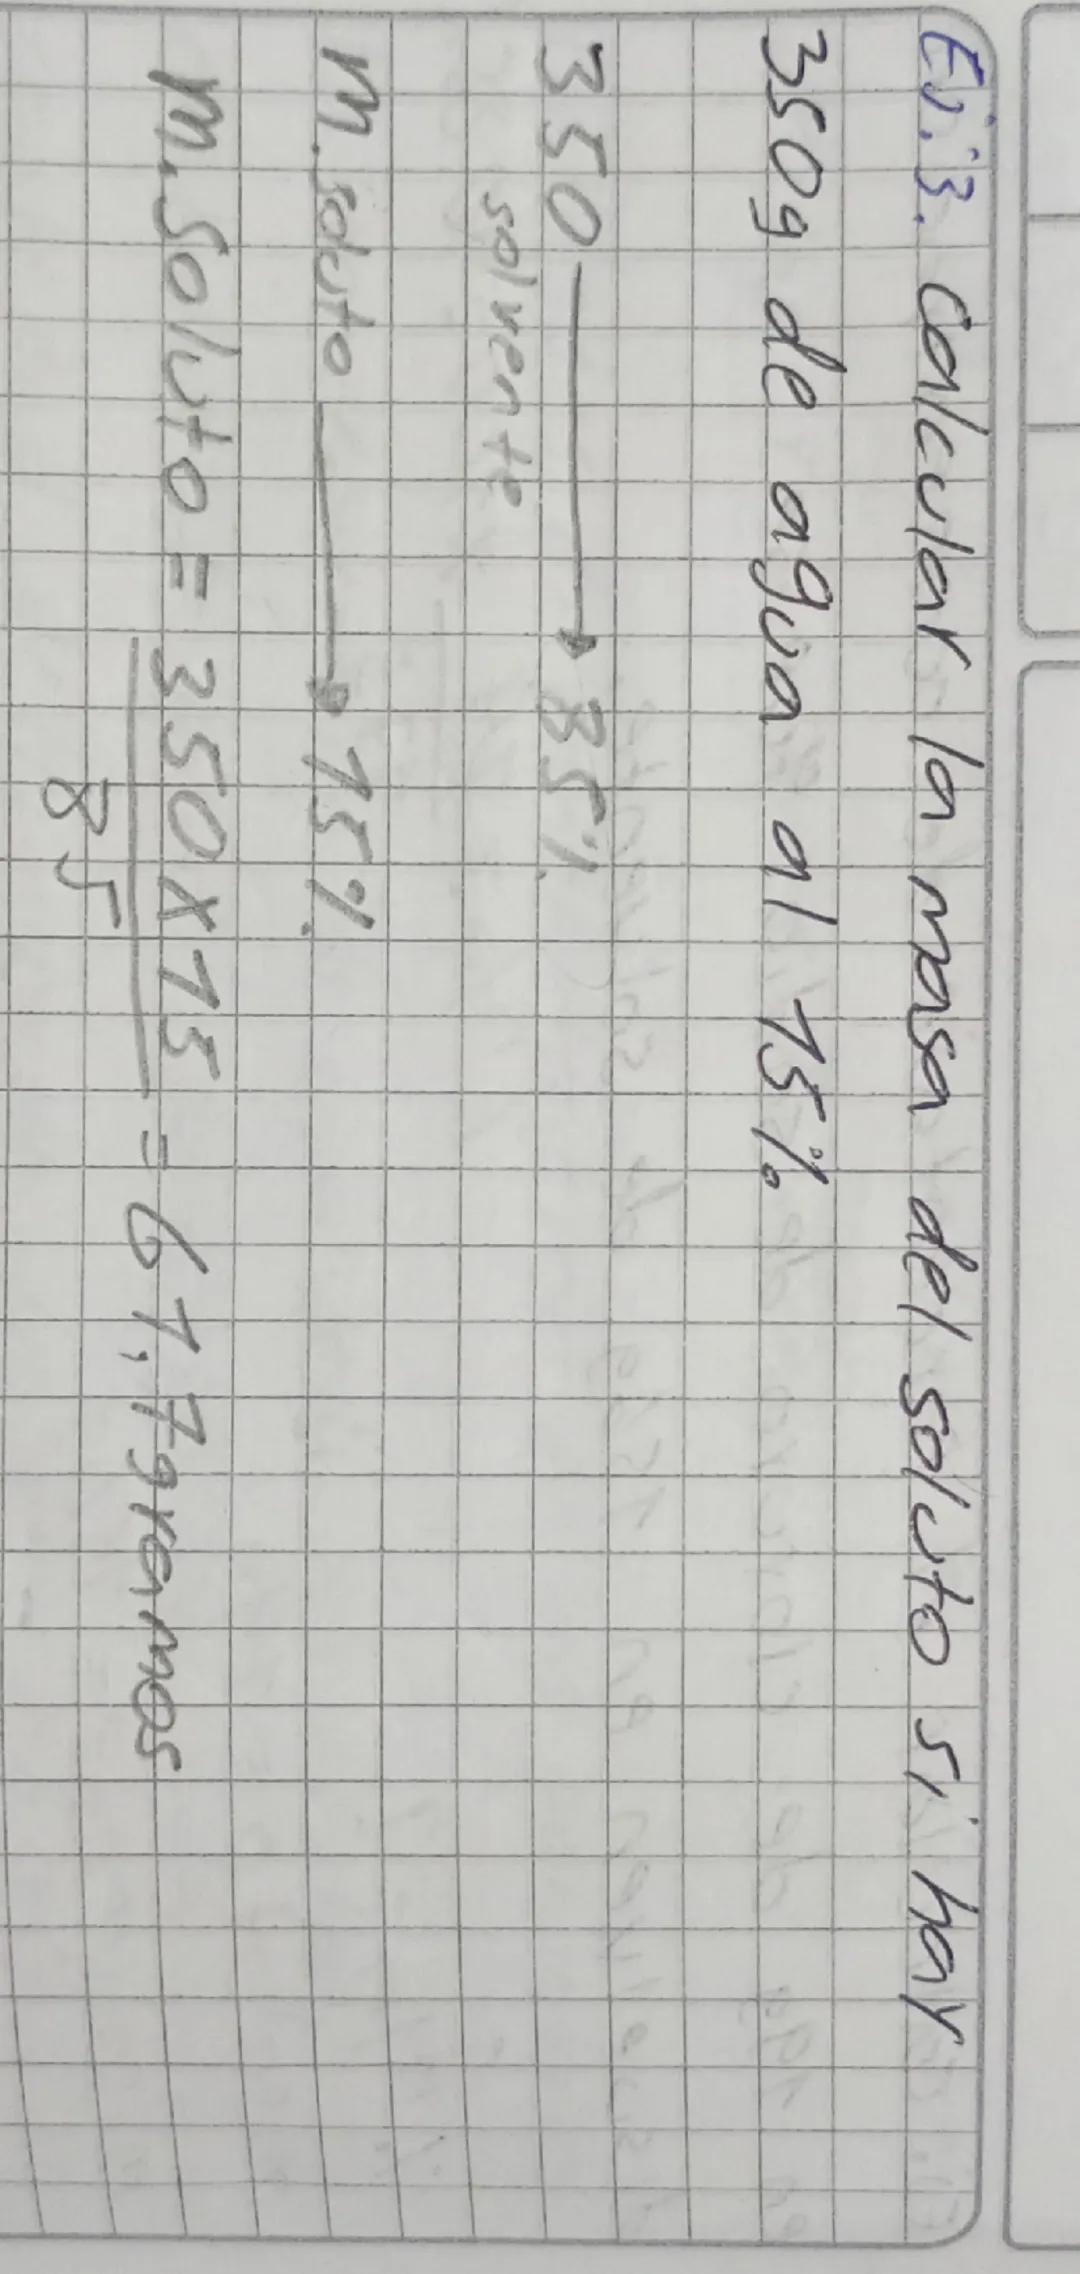 Ej.3. Calcular la masa del soluto si hay
350g de agua al 15%
350 → 85%
solvente
m.soluto → 15%
m.soluto = 350x15 = 61,7gramos
85